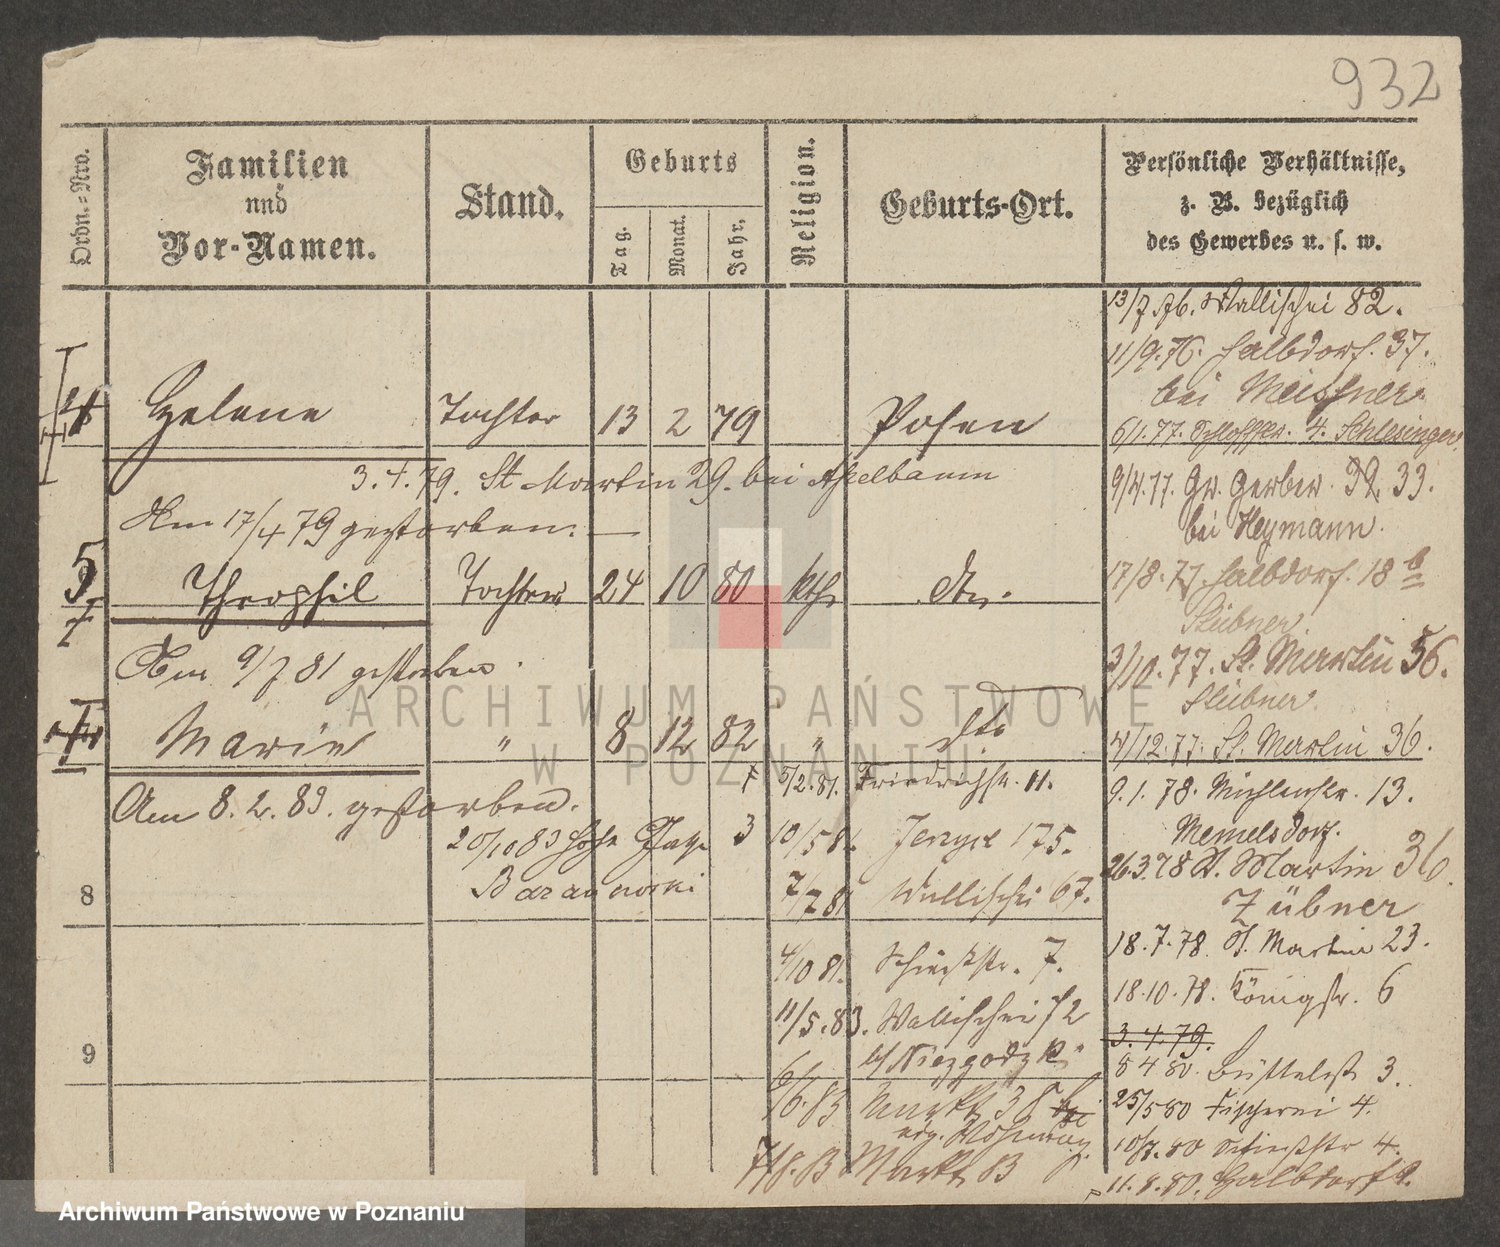 932
Ordn.-Nro.
Familien
und
Vor-Namen.
Stand.
Geburts
Tag.
Monat.
Jahr.
Religion.
Geburts-Ort.
Persönliche Verhältnisse,
z. B. bezüglich
des Gewerbes u. s. w.
13/7.76. Wallischei 82.
11/9.76. Halbdorf. 37.
bei Meissner.
Helene Tochter 13 2 79 Posen
6/1.77. Schlossstr. 4. Schlesinger
3.4.79. St Martin 29. bei Apelbaum
9/4.77. Gr. Gerber. 32. 33.
bei Heymann.
Am 17/4 79 gestorben.
5 Theophil Tochter 24 10 80 kth dto.
17/8.77. Halbdorf. 18 b
Stübner.
Am 9/7 81 gestorben.
3/10.77. St. Martin 56.
Stübner.
Marie " 8 12 82 " dto
4/12.77. St. Martin 36.
Am 8.2.83. gestorben.
5/2.81. Friedrichstr. 11.
9.1.78. Mühlenstr. 13.
Memelsdorf.
20/10 83 Hohe Gasse 3
10/5 81. Jerzyce 175.
26.3.78 St. Martin 36.
Baranowski
7/7 81 Wallischei 67.
Zübner
8
4/10 81. Schiessstr. 7.
18.7.78. St. Martin 23.
11/5.83. Wallischei 72
18.10.78. Königstr. 6
b/ Niezgodzki
3.4.79.
9
8 4 80. Büttelstr 3.
6/6.83 Markt 38 bei
25/5 80 Fischerei 4.
10/7.80 Schiessstr 4.
7/8.83 Markt 83
11.8.80. Halbdorf 2.
ARCHIWUM PAŃSTWOWE
W POZNANIU
Archiwum Państwowe w Poznaniu